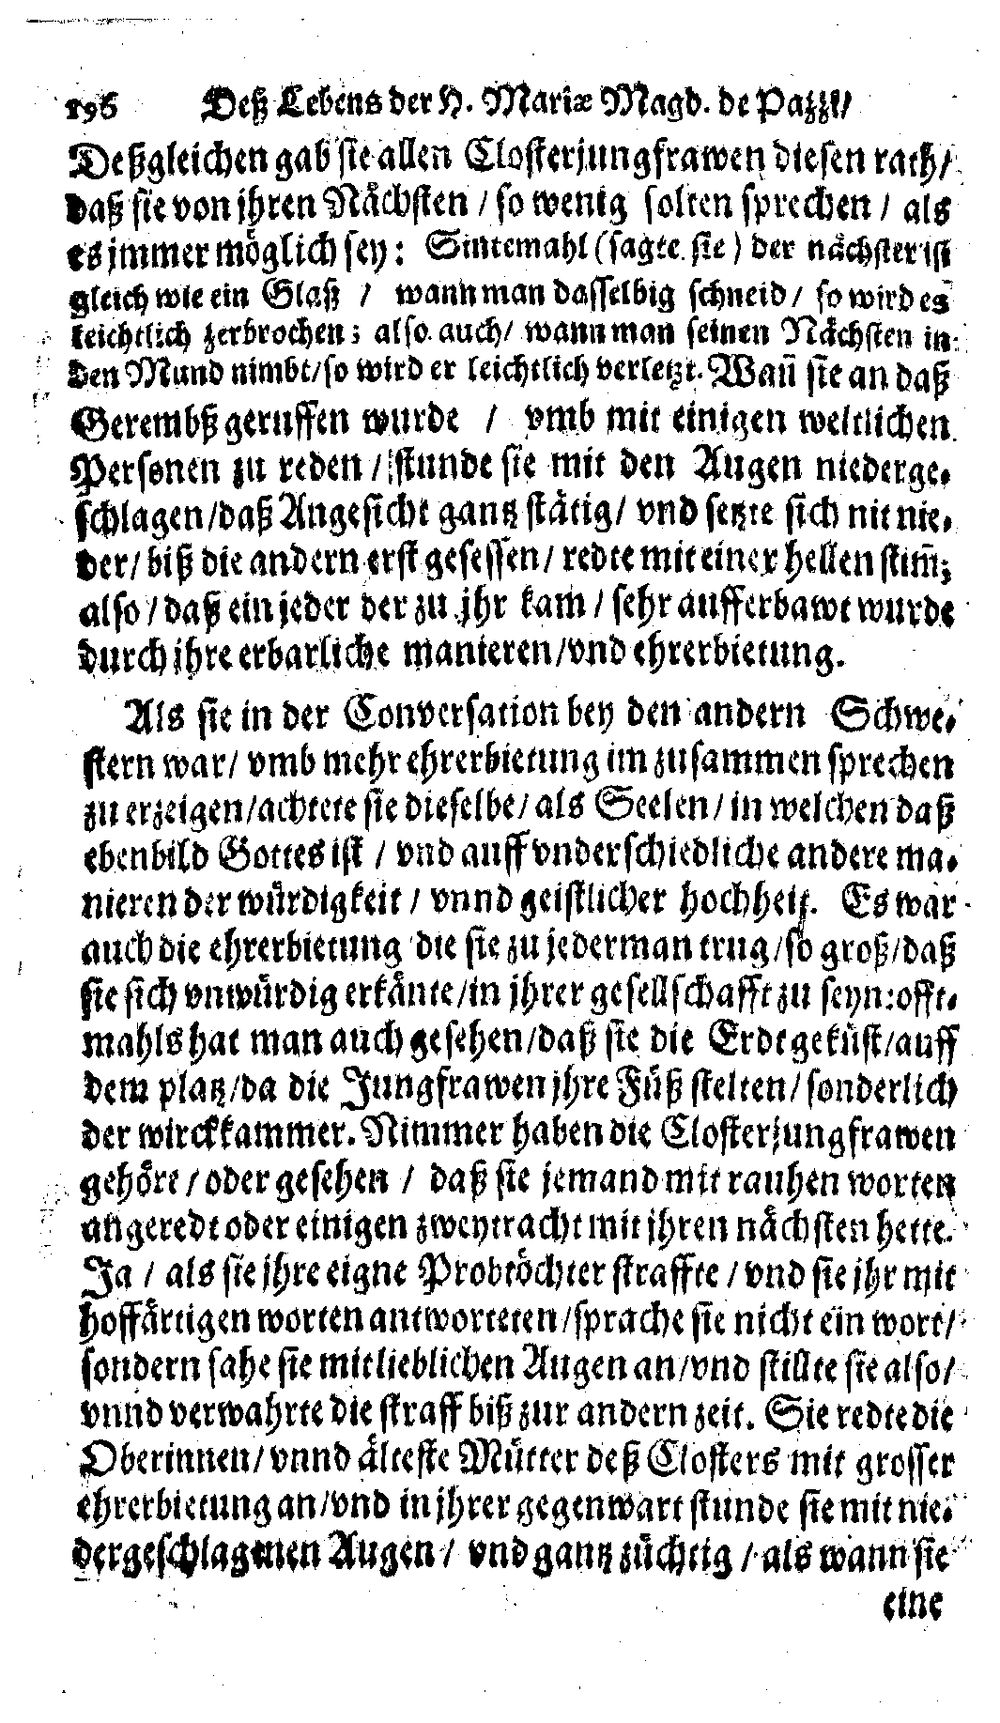 196 Deß Lebens der H. Mariæ Magd. de Pazzi/
Deßgleichen gab sie allen Closterjungfrawen diesen rath/
daß sie von jhren Nächsten / so wenig solten sprechen / als
es jmmer möglich sey: Sintemahl (sagte sie) der nächster ist
gleich wie ein Glaß / wann man dasselbig schneid / so wird es
leichtlich zerbrochen; also auch / wann man seinen Nächsten in
den Mund nimbt/so wird er leichtlich verletzt. Wañ sie an daß
Gerembß geruffen wurde / vmb mit einigen weltlichen
Personen zu reden / stunde sie mit den Augen niederge-
schlagen/daß Angesicht gantz stätig/ vnd setzte sich nit nie-
der/ biß die andern erst gesessen/ redte mit einer hellen stim̃;
also / daß ein jeder der zu jhr kam / sehr aufferbawt wurde
durch jhre erbarliche manieren/vnd ehrerbietung.
Als sie in der Conversation bey den andern Schwe-
stern war/ vmb mehr ehrerbietung im zusammen sprechen
zu erzeigen/achtete sie dieselbe/ als Seelen/ in welchen daß
ebenbild Gottes ist / vnd auff vnderschiedliche andere ma-
nieren der würdigkeit / vnnd geistlicher hochheit. Es war
auch die ehrerbietung die sie zu jederman trug/so groß/daß
sie sich vnwürdig erkänte/in jhrer gesellschafft zu seyn: offt-
mahls hat man auch gesehen/daß sie die Erdt geküst/auff
dem platz/da die Jungfrawen jhre Füß stelten/ sonderlich
der wirckkammer. Nimmer haben die Closterjungfrawen
gehört / oder gesehen / daß sie jemand mit rauhen worten
angeredt oder einigen zweytracht mit jhren nächsten hette.
Ja / als sie jhre eigne Probtöchter straffte / vnd sie jhr mit
hoffärtigen worten antworteten/sprache sie nicht ein wort/
sondern sahe sie mit lieblichen Augen an/vnd stillte sie also/
vnnd verwahrte die straff biß zur andern zeit. Sie redte die
Oberinnen/ vnnd älteste Mütter deß Closters mit grosser
ehrerbietung an/vnd in jhrer gegenwart stunde sie mit nie-
dergeschlagenen Augen/ vnd gantz züchtig / als wann sie
eine